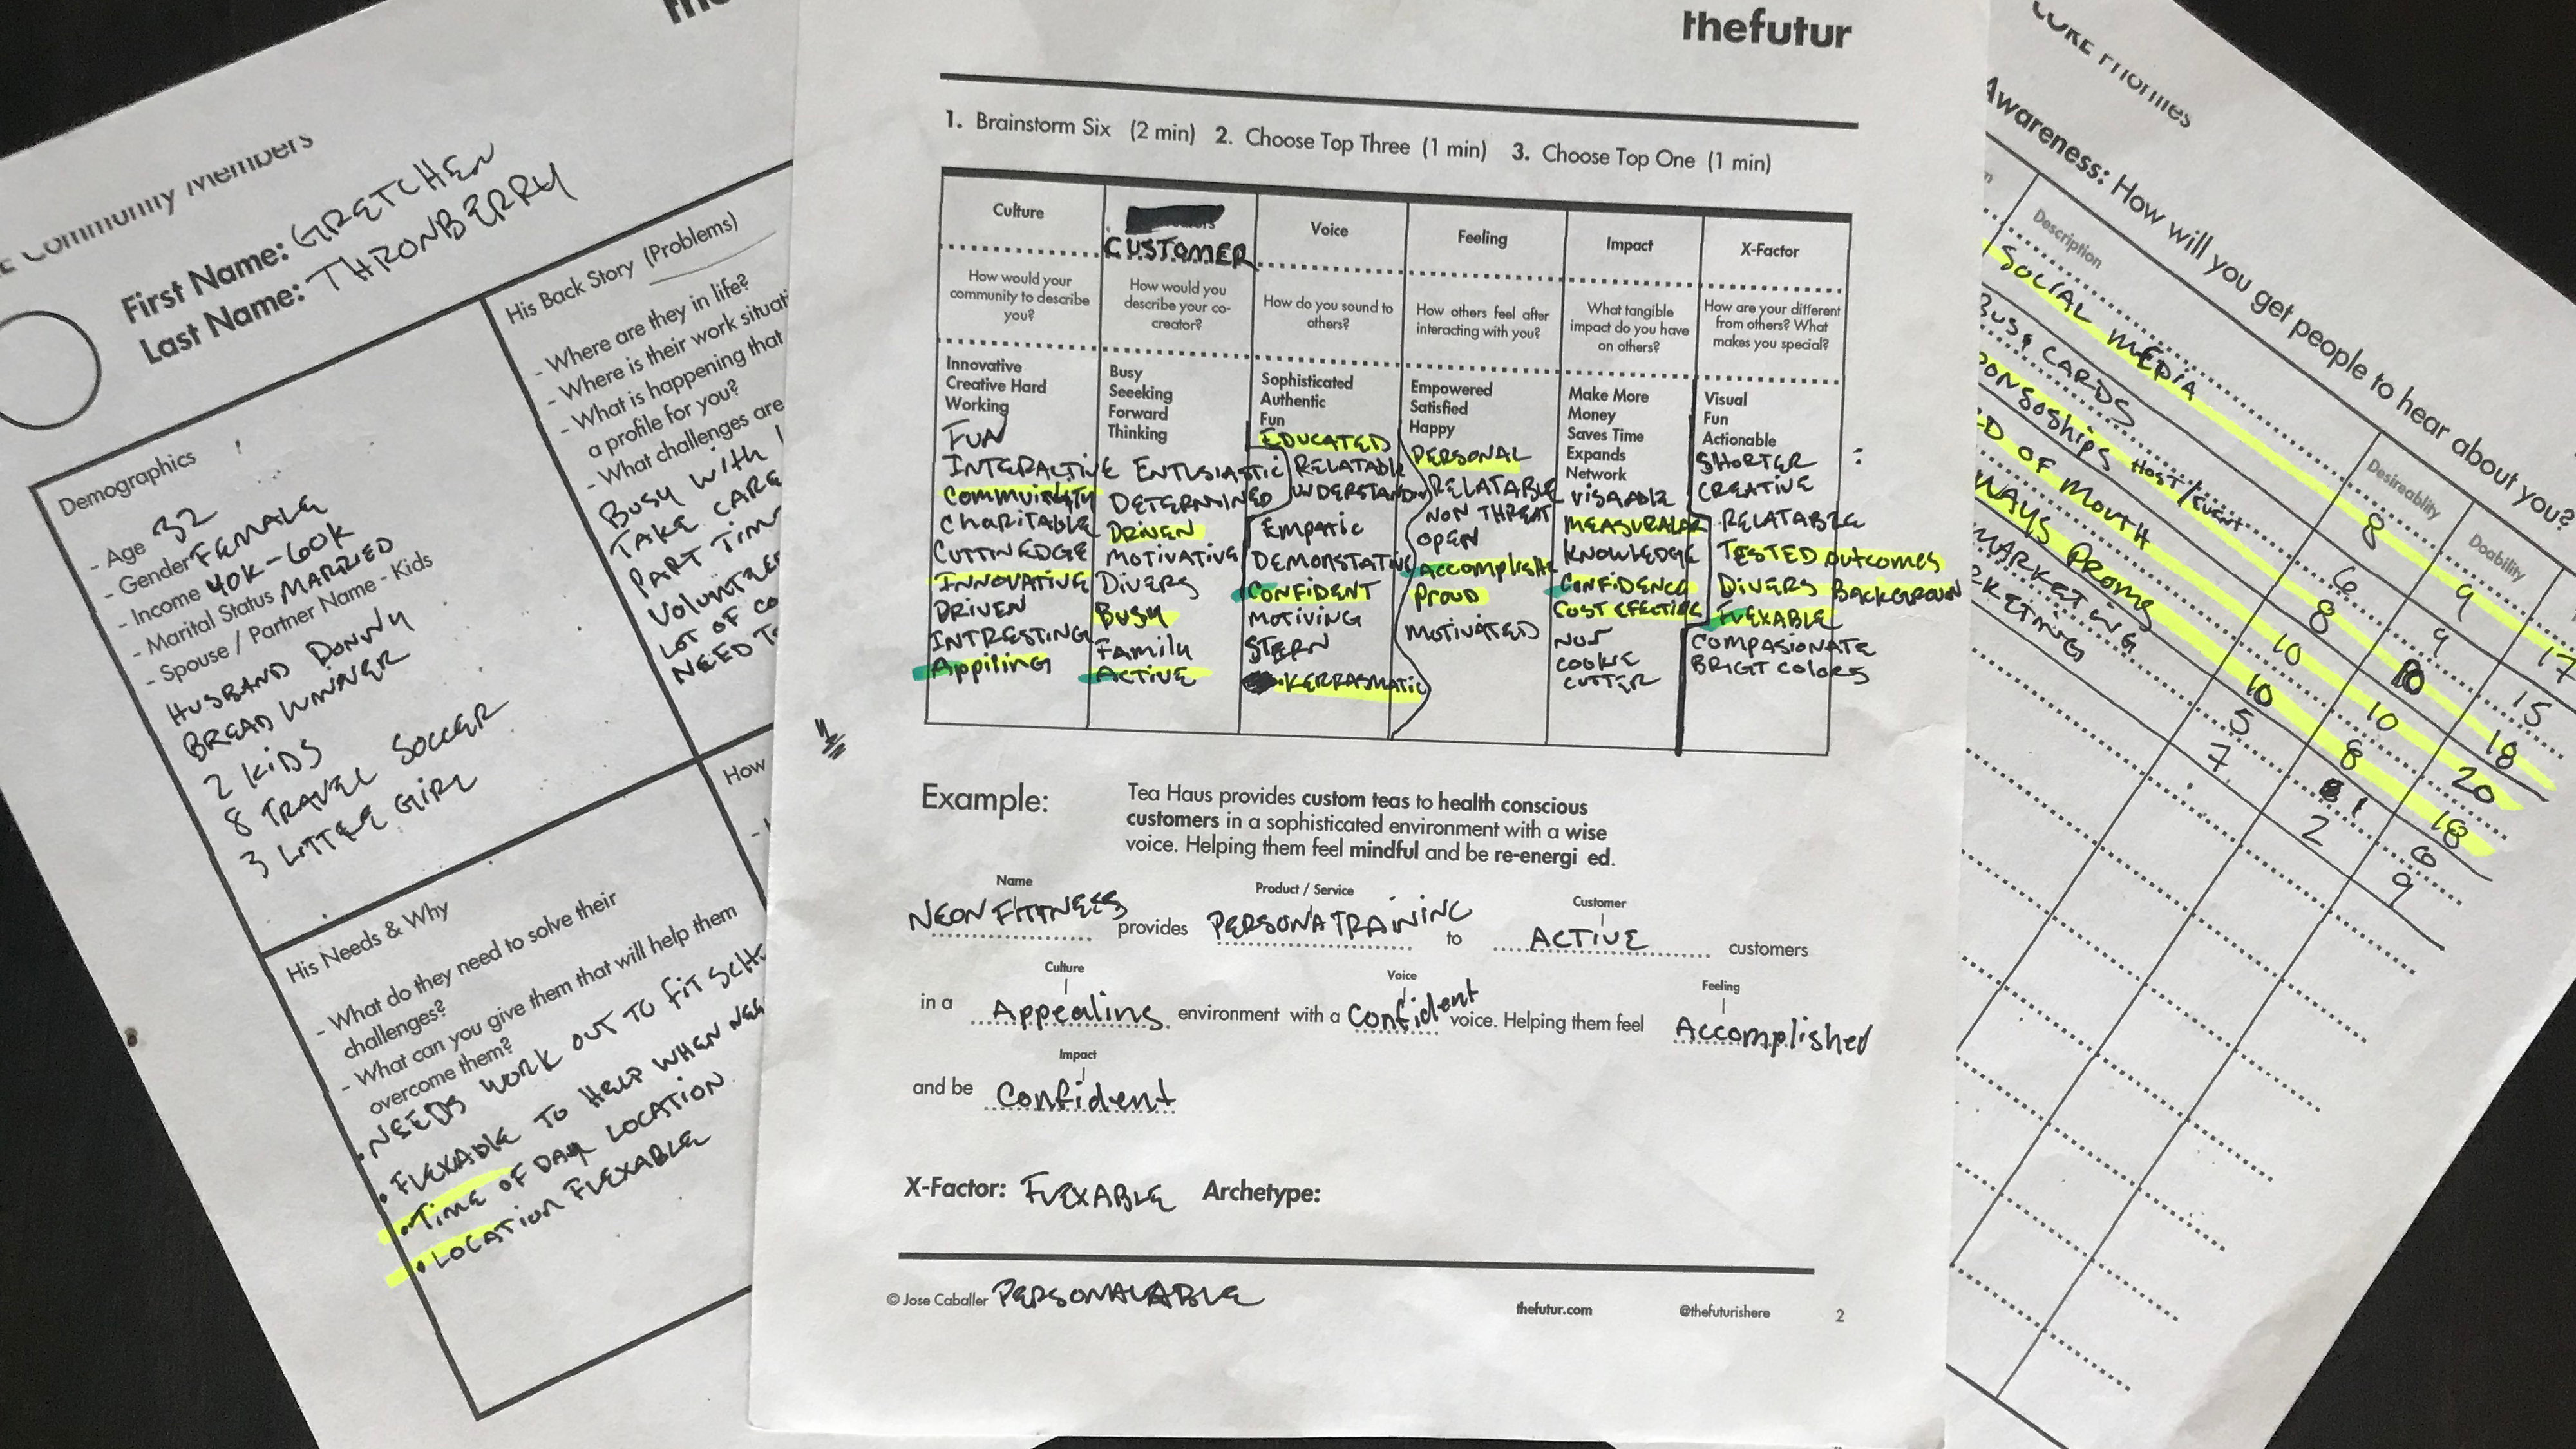 Community Members
First Name: GRETCHEN
Last Name: THRONBERRY
Demographics
- Age 32
- Gender FEMALE
- Income 40K-60K
- Marital Status MARRIED
- Spouse / Partner Name - Kids
HUSBAND DONNY
BREAD WINNER
2 KIDS
8 TRAVEL SOCCER
3 LITTLE GIRL
His Back Story (Problems)
- Where are they in life?
- Where is their work
- What is happening that
a profile for you?
- What challenges are
BUSY WITH
TAKE CARE
PART TIME
VOLUNTEER
LOT OF
NEED
How
His Needs & Why
- What do they need to solve their
challenges?
- What can you give them that will help them
overcome them?
• NEEDS WORK OUT TO FIT
• FLEXABLE TO HELP WHEN
• TIME OF DAY LOCATION
• LOCATION FLEXABLE
thefutur
1. Brainstorm Six (2 min) 2. Choose Top Three (1 min) 3. Choose Top One (1 min)
Culture
How would your
community to describe
you?
Innovative
Creative Hard
Working
FUN
INTERACTIVE
COMMUNITY
CHARITABLE
CUTTINEDGE
INNOVATIVE
DRIVEN
INTRESTING
Appiling
CUSTOMER
How would you
describe your co-
creator?
Busy
Seeeking
Forward
Thinking
ENTUSIASTIC
DETERMINED
DRIVEN
MOTIVATIVE
DIVERS
BUSY
FAMILY
ACTIVE
Voice
How do you sound to
others?
Sophisticated
Authentic
Fun
EDUCATED
RELATABLE
EMPATIC
DEMONSTATIVE
CONFIDENT
MOTIVING
STERN
KERRASMATIC
Feeling
How others feel after
interacting with you?
Empowered
Satisfied
Happy
PERSONAL
RELATABLE
NON THREAT
OPEN
ACCOMPLISHE
PROUD
MOTIVATED
Impact
What tangible
impact do you have
on others?
Make More
Money
Saves Time
Expands
Network
VISAABLE
KNOWLEDGE
CONFIDENCE
COST EFECTIVE
NOT
COOKIE
CUTTER
X-Factor
How are your different
from others? What
makes you special?
Visual
Fun
Actionable
SHORTER
CREATIVE
RELATABLE
TESTED OUTCOMES
DIVERS BACKGROUN
FLEXABLE
COMPASIONATE
BRIGT COLORS
Example:
Tea Haus provides custom teas to health conscious
customers in a sophisticated environment with a wise
voice. Helping them feel mindful and be re-energi ed.
Name Product / Service Customer
NEON FITTNESS provides PERSONATRAINING to ACTIVE customers
Culture Voice Feeling
in a Appealing environment with a Confident voice. Helping them feel Accomplished
Impact
and be Confident
X-Factor: FLEXABLE Archetype:
© Jose Caballer PERSONALABLE thefutur.com @thefuturishere 2
Awareness: How will you get people to hear about you?
Description Desireablity Doability
SOCIAL MEDIA 8 9 17
BUS, CARDS 6 9 15
HOST/EVENT 8 10 18
OF MOUTH 10 10 20
WAYS PROMO 10 8 18
MARKETING 5 1 6
7 2 9